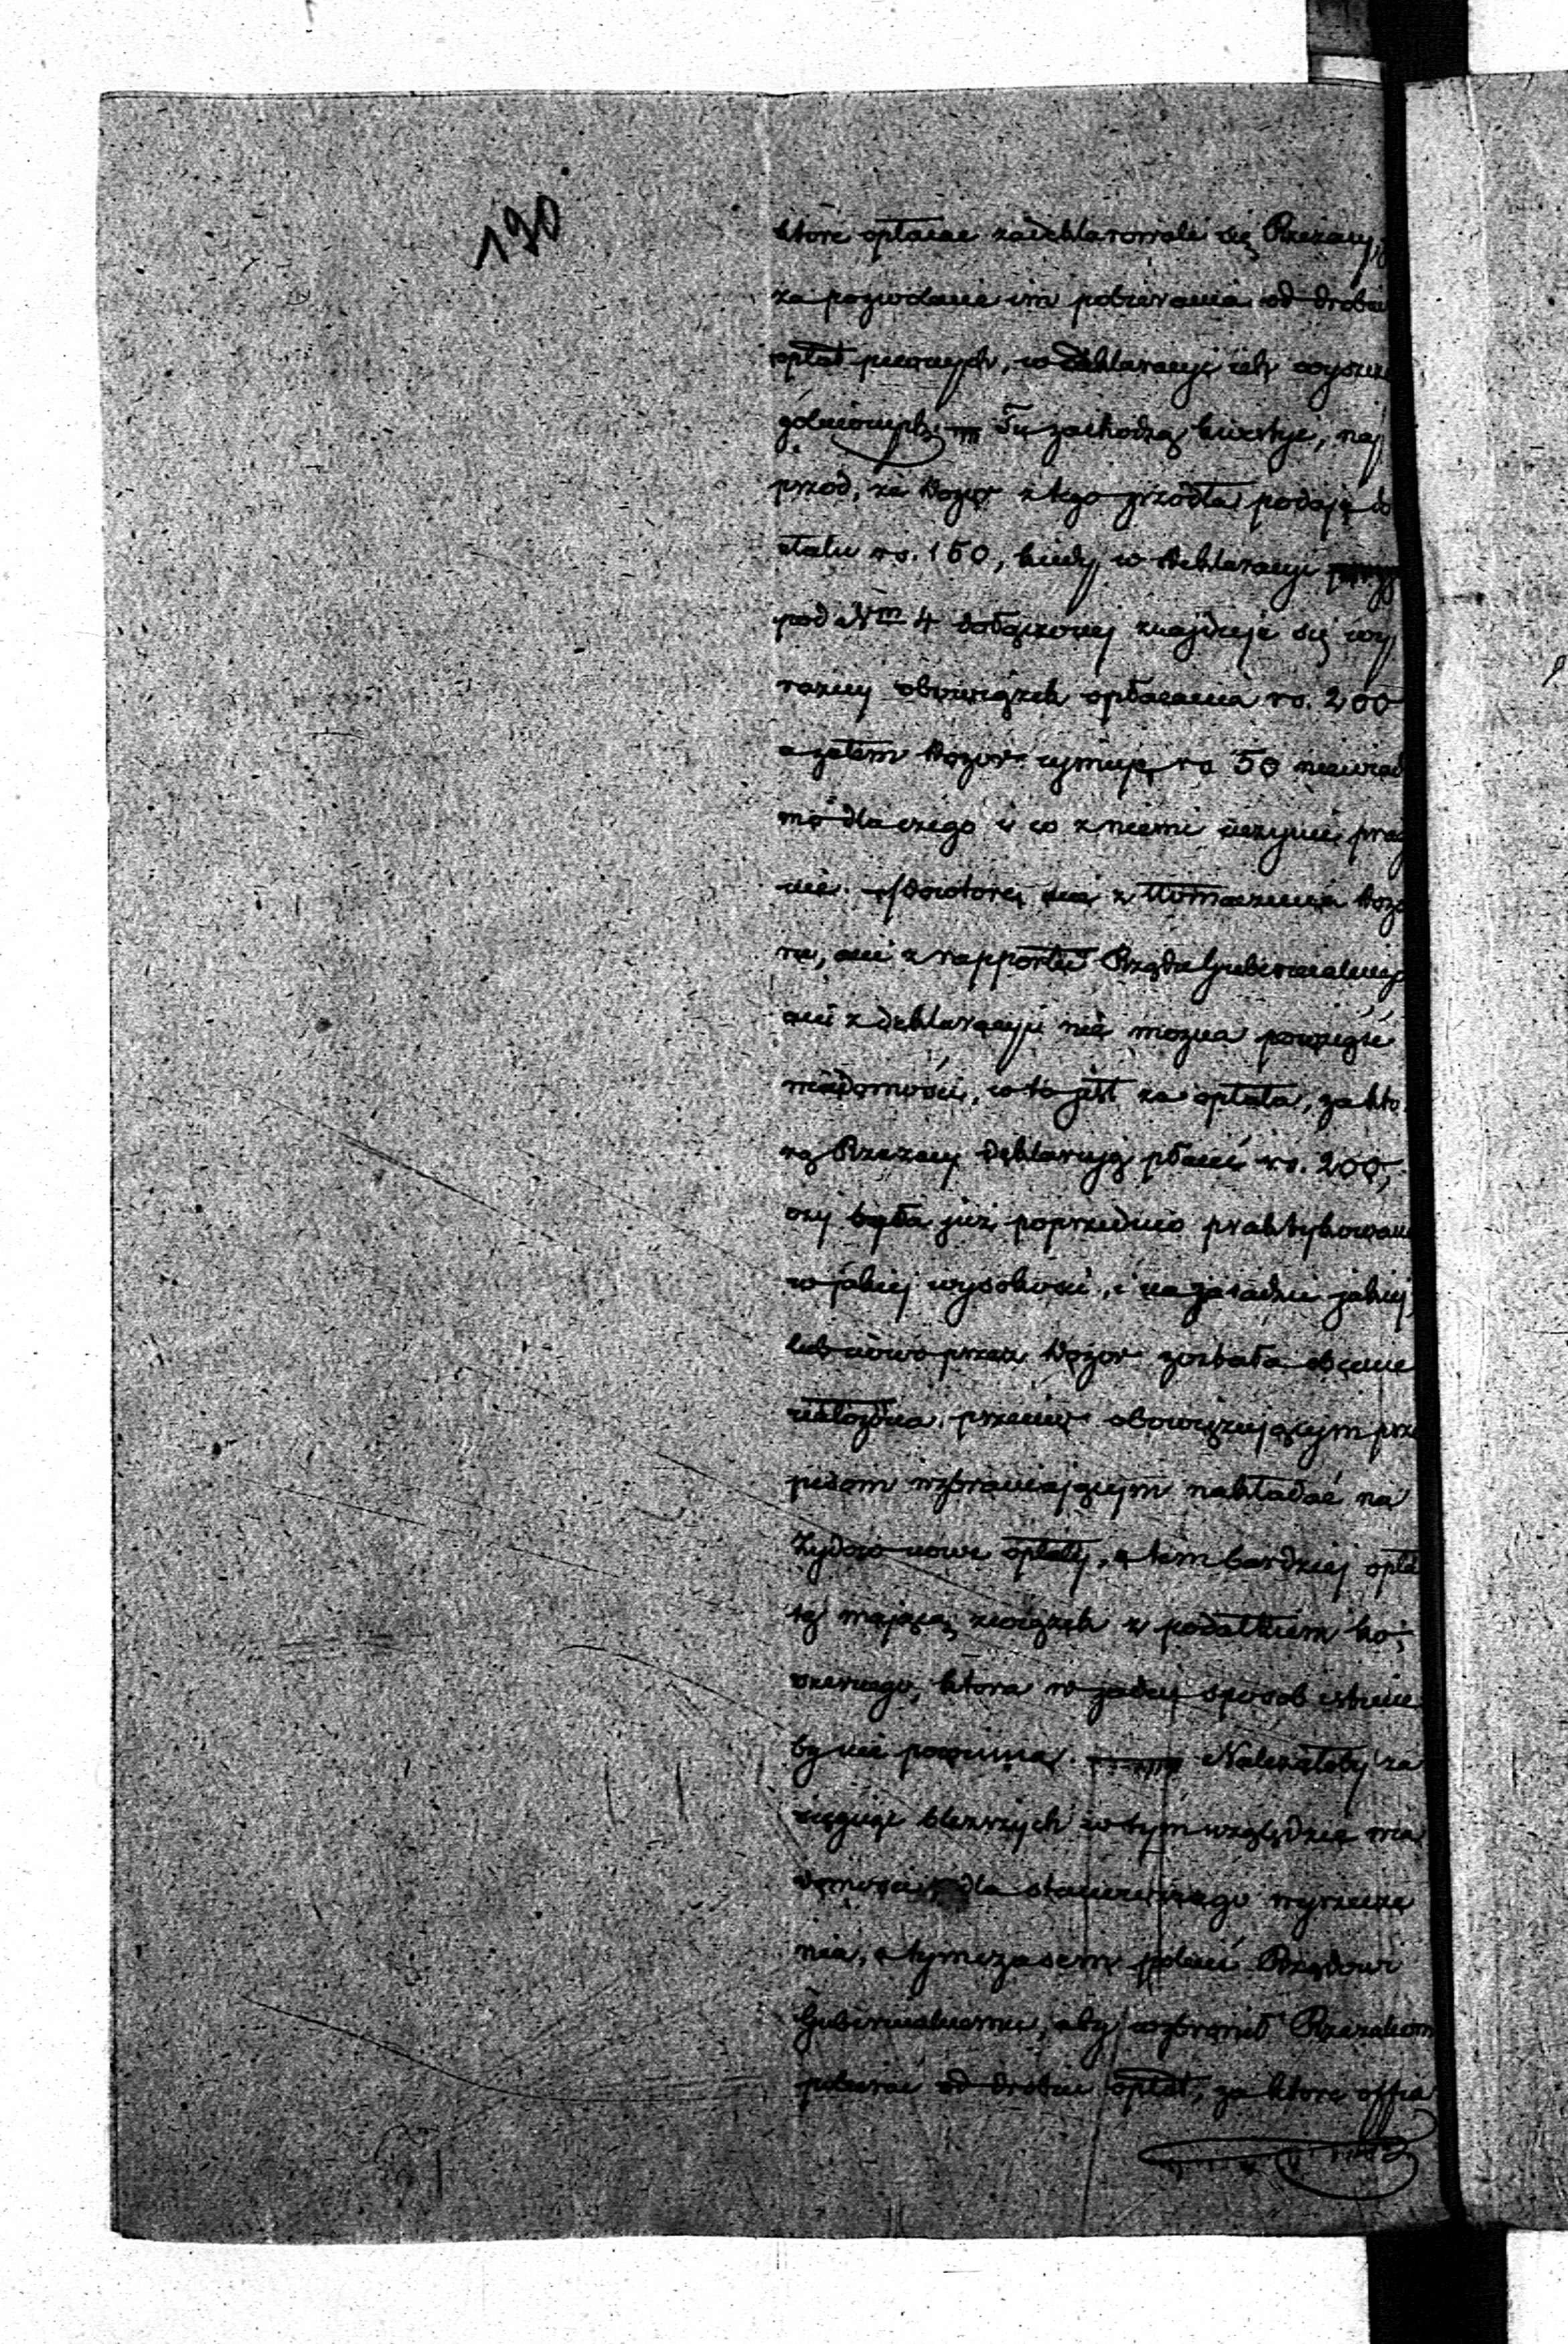 190
które opłacac zadeklarowali się Rzezacy,
za pozwolenie im pobierania od drobiu
opłat pewnych, w deklaracyi ich wyszcze
gólnionych. Tu zachodzą kwestye, naj
przod, że Dozor z tego zrzodła podaje do
etatu rs. 150, kiedy w deklaracyi
pod Nm 4 dołączonej znajduje się wy
raźny obowiązek opłacania rs. 200
a zatem Dozor ujmuje rs 50 niewiado
mo dlaczego i co z niemi uczynić prag
nie. Powtore, ani z tłomaczenia Dozo
ru, ani z rapportu Rządu Gubernialnego
ani z deklaracyi nie mozna powziąść
wiadomości, co to jest za opłata, za któ
rą Rzezacy deklarują płacić rs. 200,
czy była już poprzednio praktykowana
w jakiej wysokości, i na zasadzie jakiej,
lub nowo przez Dozor została obecnie
nałożona, przeciw obowiązującym prze
pisom wzbraniającym nakładać na
Żydow nowe opłaty, a tem bardziej opła
tę mającą związek z podatkiem ko-
szernego, która w żaden sposob istnieć
by nie powinna. Należałoby za
sięgnąć bliższych w tym względzie wia
domości dla stanowczego wyrzecze
nia, a tymczasem polecić Rządowi
Gubernialnemu, aby wzbronił Rzezakom
pobierać od drobiu opłat, za które offia